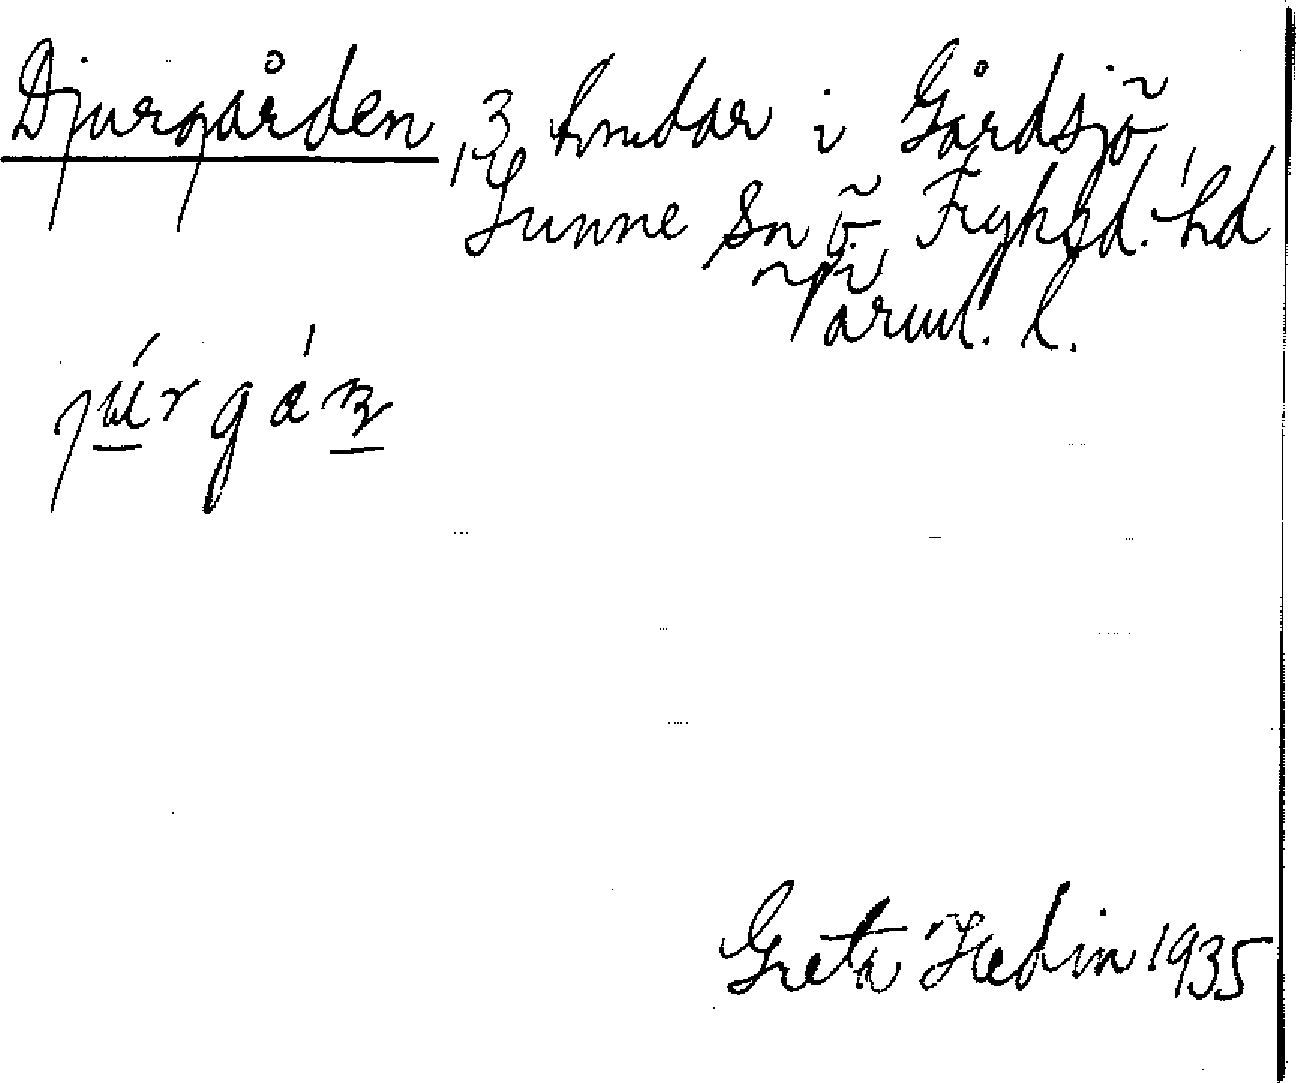 Djurgården, 3 hmdar i Gårdsjö
Sunne sn ö. Fryksd. hd
Värml. l.
júrgán
Greta Hedin 1935